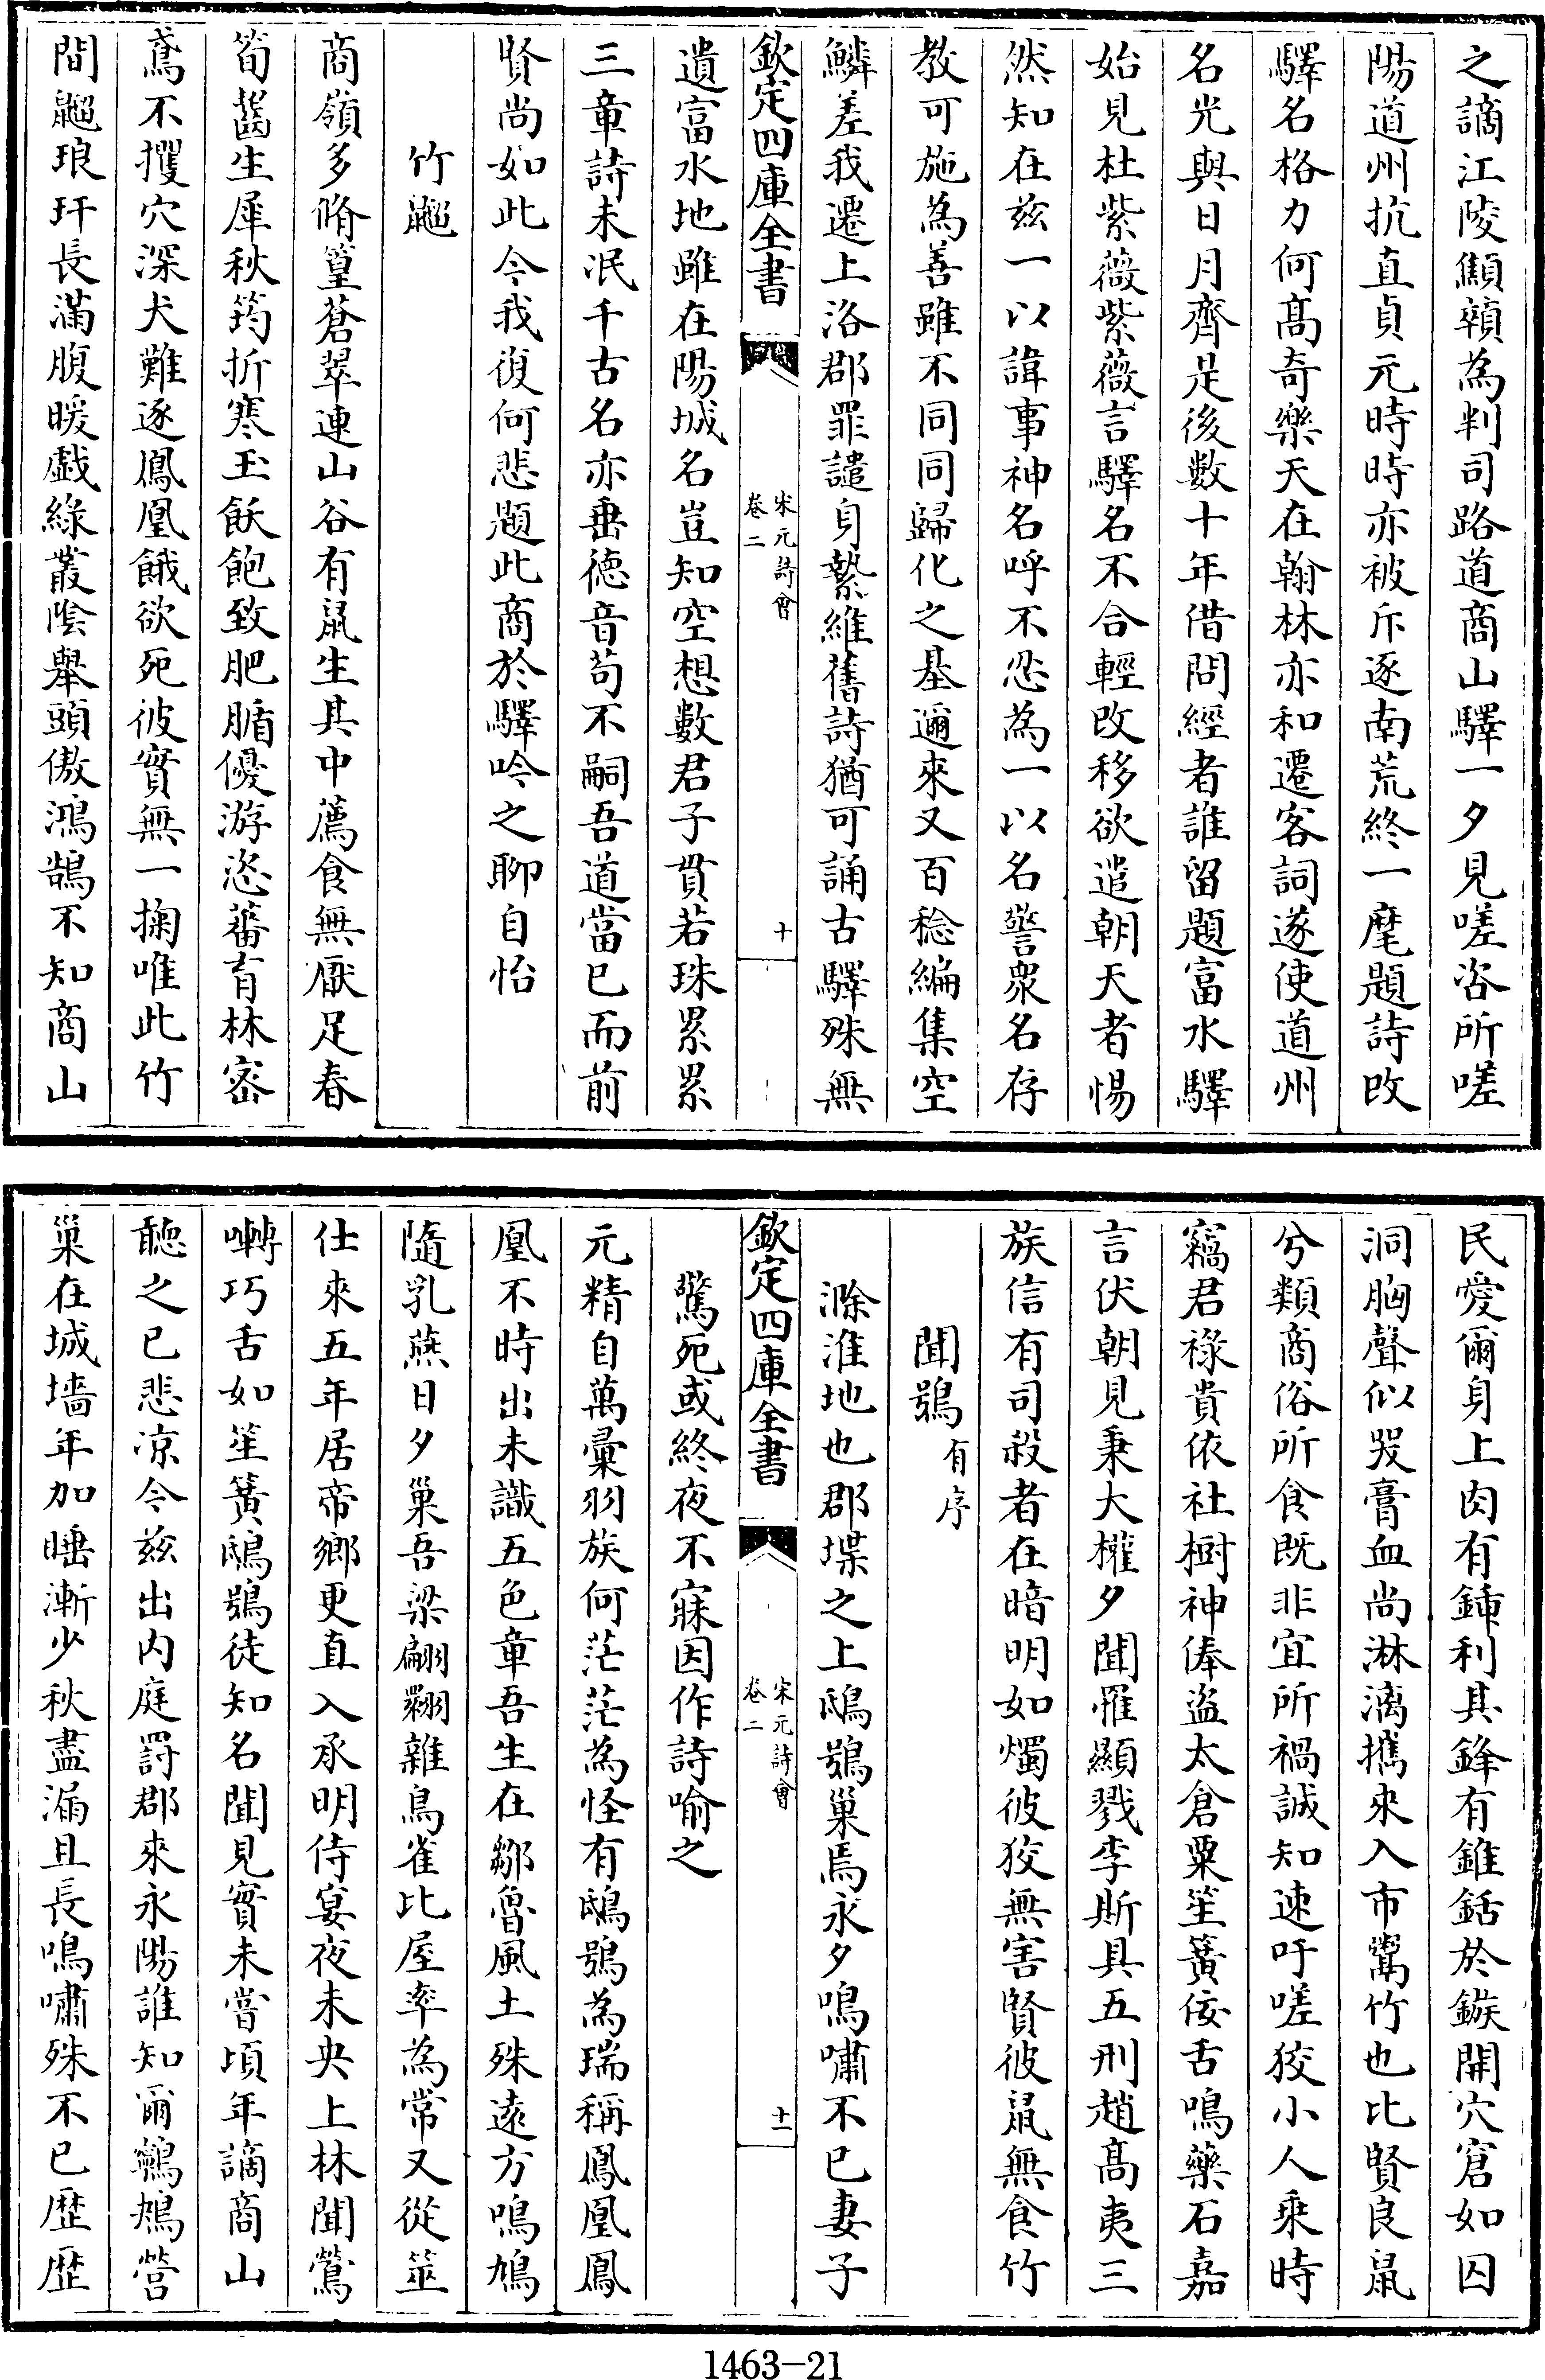 之謫江陵顦顇為判司路道商山驛一夕見嗟咨所嗟
陽道州抗直貞元時時亦被斥逐南荒終一麾題詩改
驛名格力何髙奇樂天在翰林亦和遷客詞遂使道州
名光與日月齊是後數十年借問經者誰留題富水驛
始見杜紫薇紫薇言驛名不合輕改移欲遣朝天者惕
然知在兹一以諱事神名呼不忍為一以名警衆名存
教可施為善雖不同同歸化之基邇來又百稔編集空
鱗差我遷上洛郡罪譴身縶維舊詩猶可誦古驛殊無
欽定四庫全書
宋元詩會
卷二
十
遺富水地雖在陽城名豈知空想數君子貫若珠累累
三章詩未泯千古名亦垂德音苟不嗣吾道當已而前
賢尚如此今我復何悲題此商於驛吟之聊自怡
竹䶉
商嶺多脩篁蒼翠連山谷有鼠生其中薦食無厭足春
筍齧生犀秋筠折寒玉飫飽致肥腯優游恣蕃育林宻
鳶不攫穴深犬難逐鳳凰餓欲死彼實無一掬唯此竹
間䶉琅玕長滿腹暖戲緑叢陰舉頭傲鴻鵠不知商山
民愛爾身上肉有鍤利其鋒有錐銛於鏃開穴窘如囚
洞胸聲似哭膏血尚淋漓攜來入市鬻竹也比賢良鼠
兮類商俗所食既非宜所禍誠知速吁嗟狡小人乘時
竊君祿貴依社樹神俸盜太倉粟笙簧佞舌鳴藥石嘉
言伏朝見秉大權夕聞罹顯戮李斯具五刑趙髙夷三
族信有司殺者在暗明如燭彼狡無害賢彼鼠無食竹
聞鴞有序
滁淮地也郡堞之上鴟鴞巢焉永夕鳴嘯不已妻子
欽定四庫全書
宋元詩會
卷二
十一
驚死或終夜不寐因作詩喻之
元精自萬彚羽族何茫茫為怪有鴟鴞為瑞稱鳳凰鳳
凰不時出未識五色章吾生在鄒魯風土殊遠方鳴鳩
隨乳燕日夕巢吾梁翩翾雜鳥雀比屋率為常又從筮
仕來五年居帝鄉更直入承明侍宴夜未央上林聞鶯
囀巧舌如笙簧鴟鴞徒知名聞見實未嘗頃年謫商山
聽之已悲凉今兹出内庭罸郡來永陽誰知爾鵂鶹營
巢在城墻年加睡漸少秋盡漏且長鳴嘯殊不已歴歴
1463-21